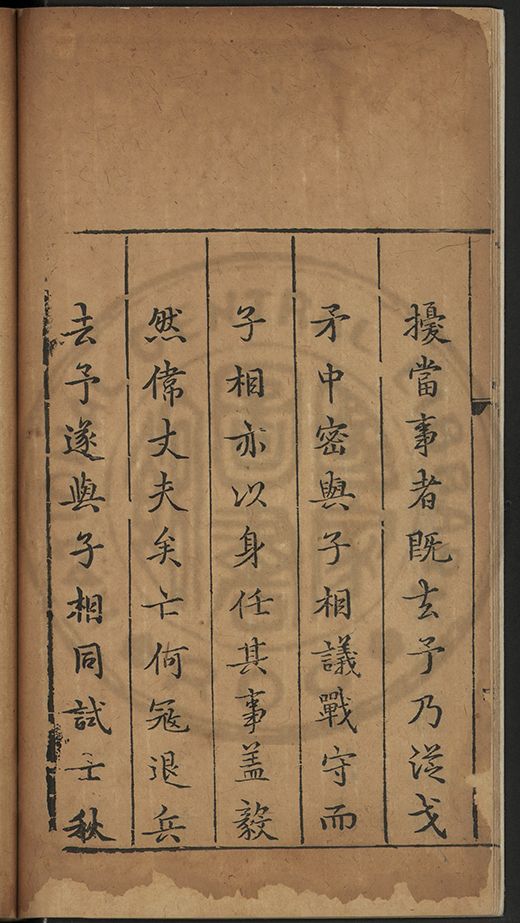 擾當事者既去予乃從戈
矛中密與子相議戰守而
子相亦以身任其事盖毅
然偉丈夫矣亡何冦退兵
去予遂與子相同試士秋